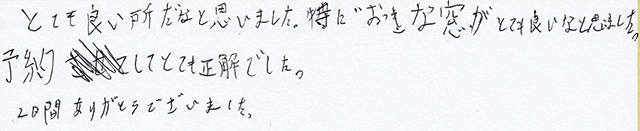 とても良い所だなと思いました。特に"おっきな窓"がとても良いなと思いました。
予約してとても正解でした。
2日間ありがとうございました。